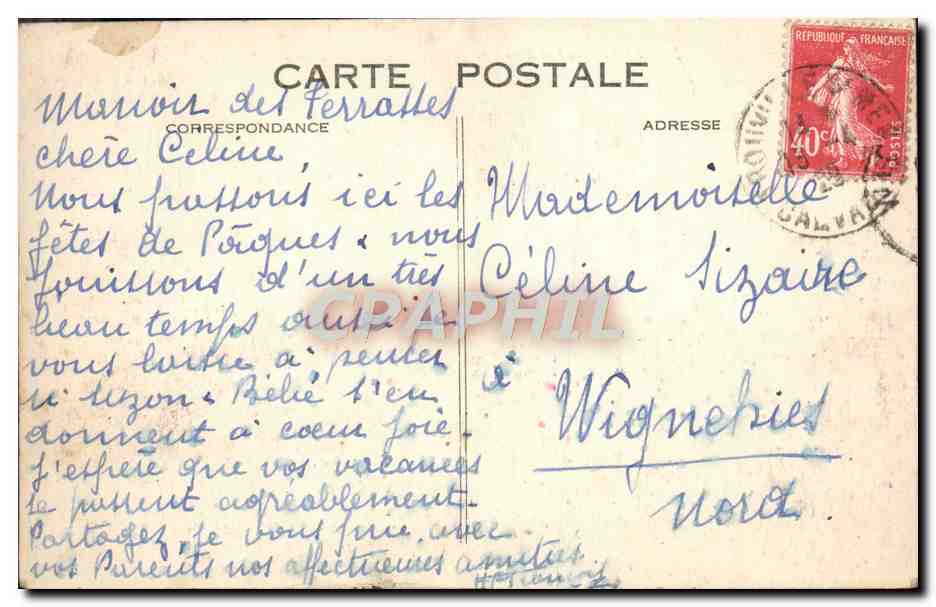 CARTE POSTALE
CORRESPONDANCE
Manoir des Terrasses
chère Céline,
Nous passons ici les
fêtes de Pâques. nous
jouissons d'un très
beau temps aussi je
vous laisse à penser
si Suzon & Bébé s'en
donnent à coeur joie.
J'espère que vos vacances
se passent agréablement.
Partagez, je vous prie, avec
vos Parents nos affectueuses amitiés
ADRESSE
Mademoiselle
Céline Sizaire
à
Wignehies
Nord
REPUBLIQUE FRANÇAISE
40c
POSTES
CALVADOS
CPAPHIL